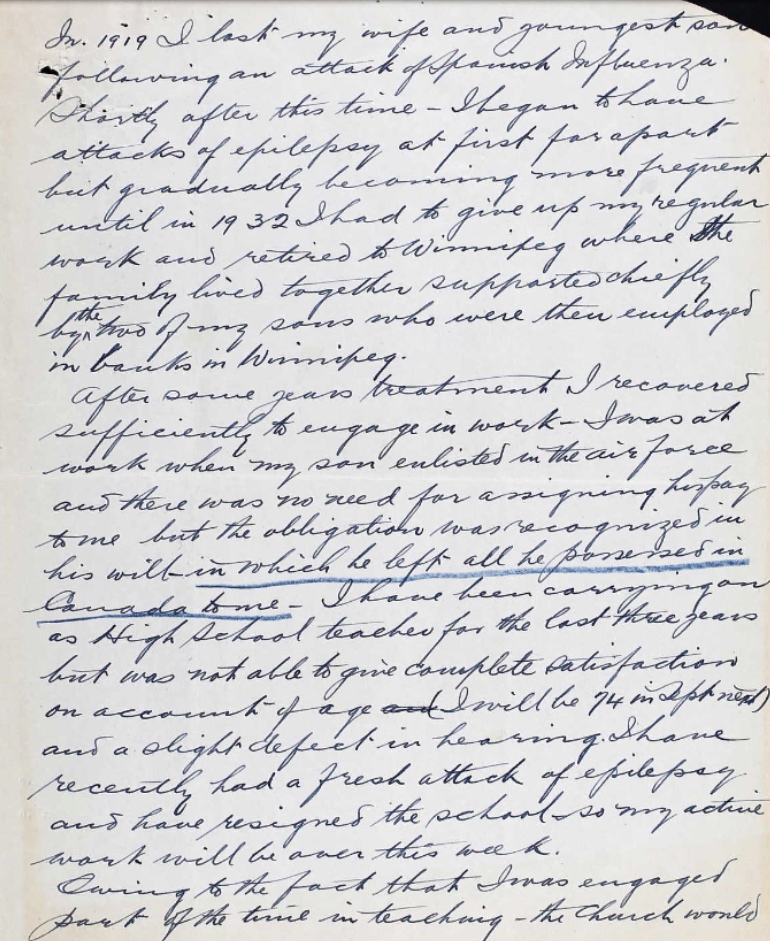 In. 1919 I lost my wife and youngest son
following an attack of Spanish Influenza.
Shortly after this time - I began to have
attacks of epilepsy at first far apart
but gradually becoming more frequent
until in 1932 I had to give up my regular
work and retired to Winnipeg where the
family lived together supported chiefly
by the two of my sons who were then employed
in banks in Winnipeg.
After some years treatment I recovered
sufficiently to engage in work - I was at
work when my son enlisted in the air force
and there was no need for assigning his pay
to me but the obligation was recognized in
his will - in which he left all he possessed in
Canada to me - I have been carrying on
as High School teacher for the last three years
but was not able to give complete satisfaction
on account of age and I will be 74 in Sept next)
and a slight defect in hearing. I have
recently had a fresh attack of epilepsy
and have resigned the school - so my active
work will be over this week.
Owing to the fact that I was engaged
part of the time in teaching - the Church would